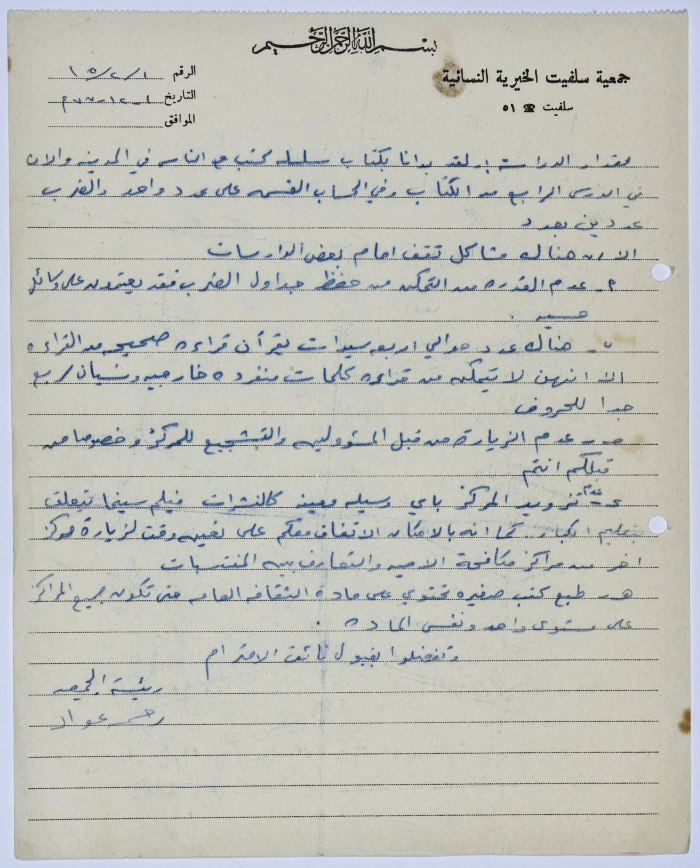 بسم الله الرحمن الرحيم
جمعية سلفيت الخيرية النسائية
سلفيت ☎ ٥١
الرقم ١/٢/١٥
التاريخ
الموافق
مقدار الدراسة : لقد بدانا بكتاب سلسله كتب مع الناس في المدينه والان
في الدرس الرابع من الكتاب وفي الحساب القسمه على عدد واحد والضرب
عددين بعدد
الا ان هناك مشاكل تقف امام بعض الدارسات
٢- عدم القدره من التمكن من حفظ جداول الضرب فقد يعتمدون على وسائل
حسيه .
ب- هناك عدد حوالي اربعه سيدات يقرأن قراءه صحيحه من القراءه
الا انهن لا يتمكن من قراءه كلمات منفرده خارجيه ونسيان سريع
جدا للحروف
حـ- عدم الزيارة من قبل المسؤوليه والتشجيع للمركز وخصوصا من
قبلكم انتم
ء- عدم تزويد المركز باي وسيله معينه كالنشرات فيلم سينما يتعلق
بتعليم الكبار . كما انه بالامكان الاتفاق معكم على تعيين وقت لزيارة مركز
اخر من مراكز مكافحة الاميه والتعارف بين المنتسبات
هـ- طبع كتب صغيره تحتوي على مادة الثقافه العامه حتى تكون جميع المراكز
على مستوى واحد ونفس الماده .
وتفضلوا بقبول فائق الاحترام
رئيسة الجمعيه
عواد